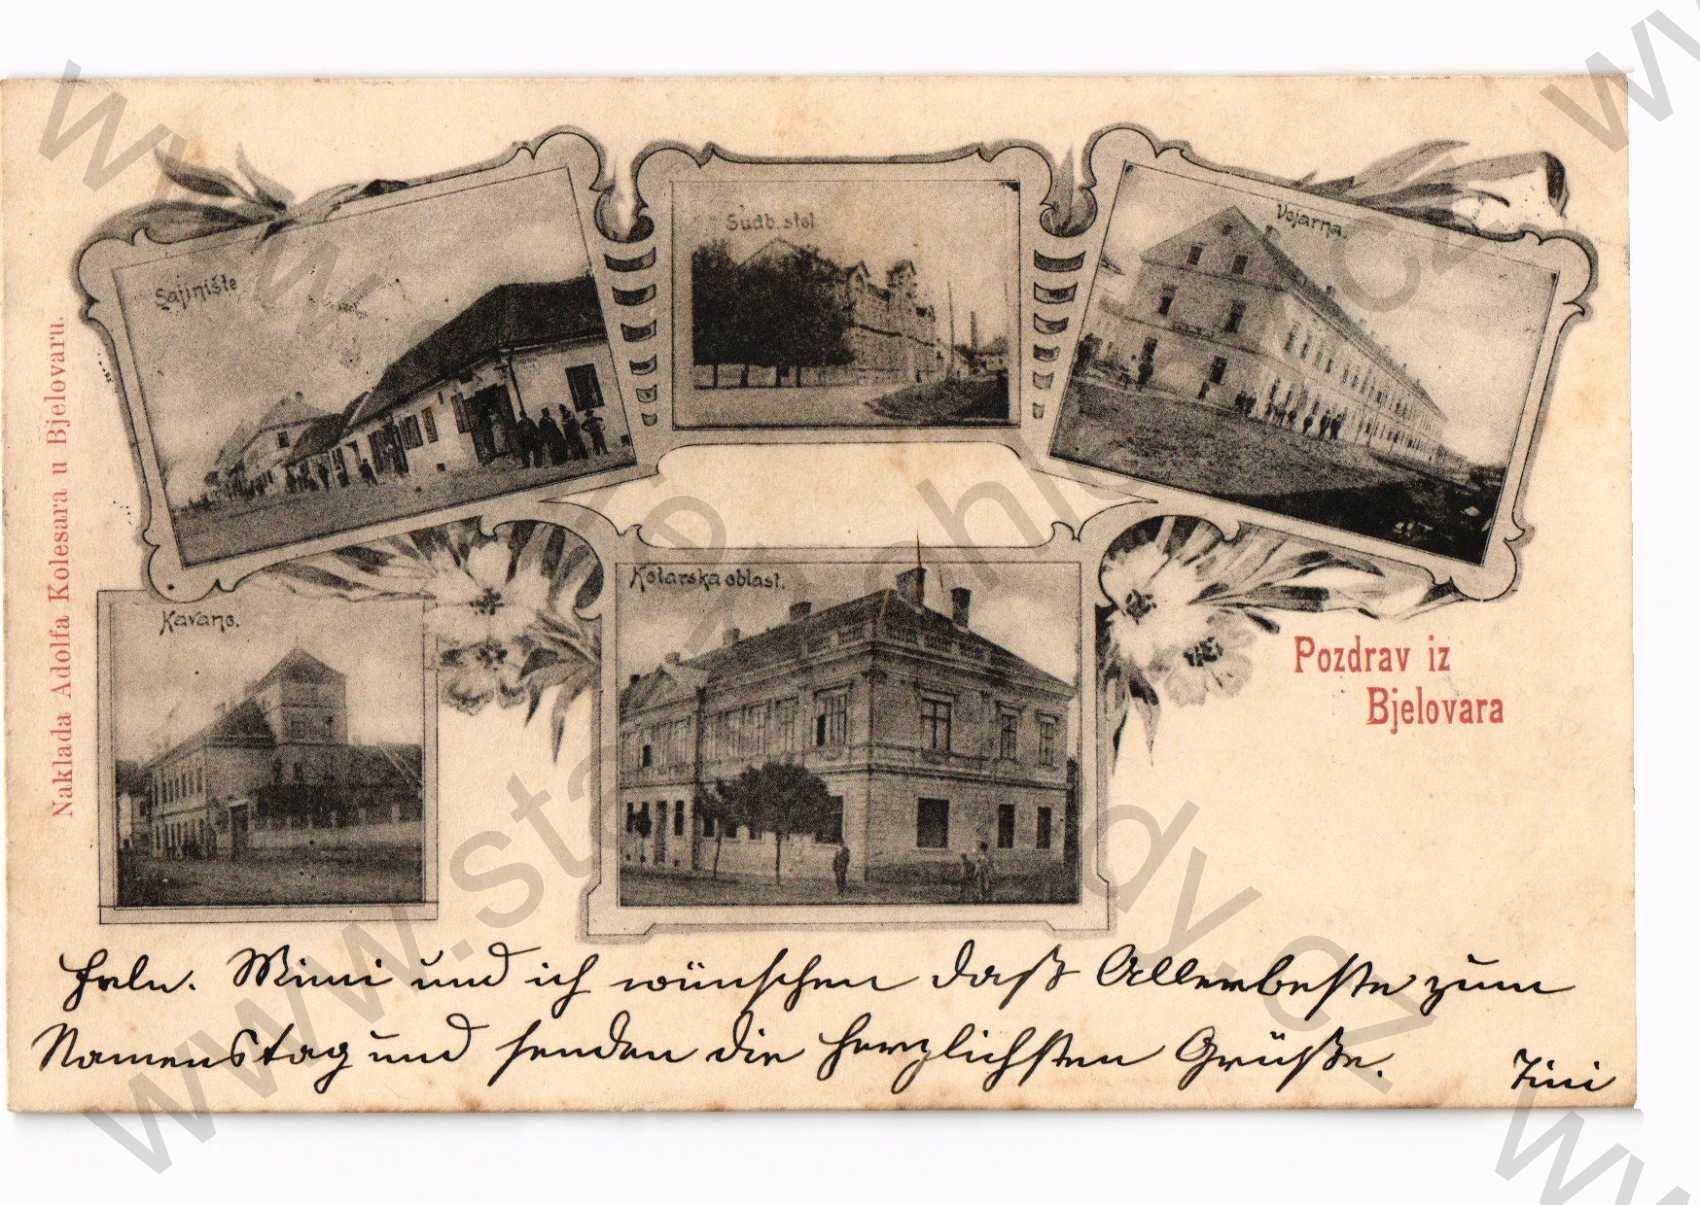 Sajmište
Sudb. stol
Vojarna.
Naklada Adolfa Kolesara u Bjelovaru.
Kavana.
Kotarska oblast.
Pozdrav iz
Bjelovara
Mimi und ich wünschen das Allerbeste zum
Namenstag und senden die herzlichsten Grüße.
Tini
www.stare-pohledy.cz